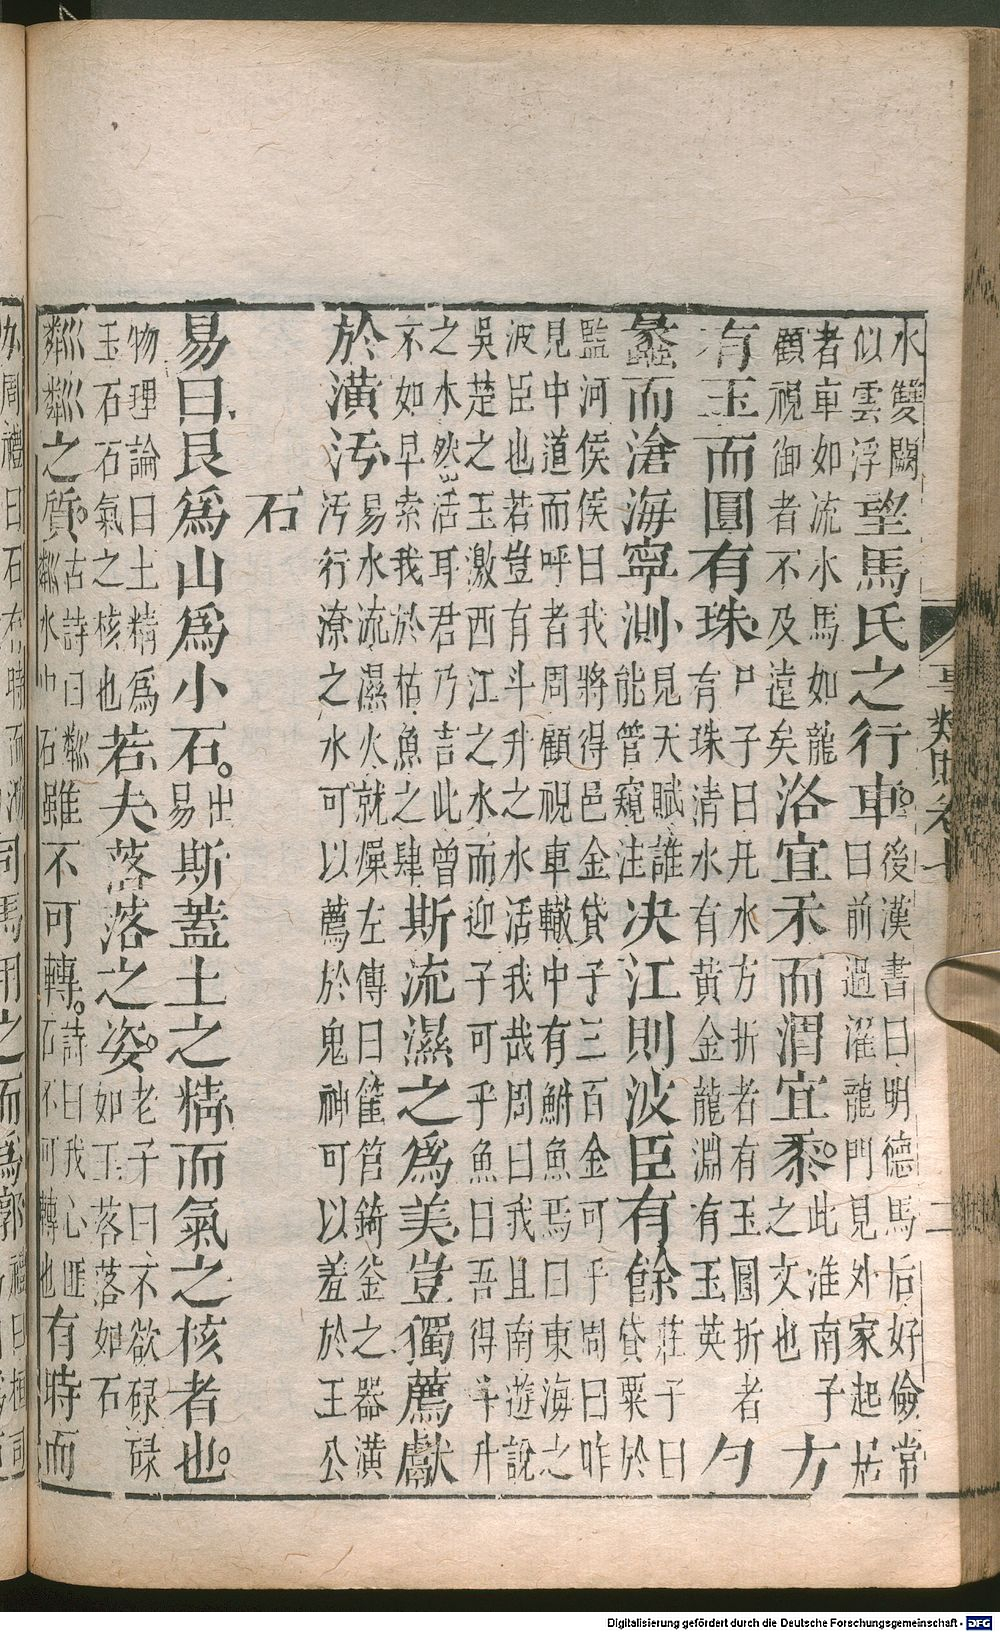 水雙闕
似雲浮
望馬氏之行車。
後漢書曰明德馬后好儉常
曰前過濯龍門見外家起居
者車如流水馬如龍
顧視御者不及遠矣
洛宜禾而潤宜黍。
此淮南子
之文也
方
有玉而圓有珠
尸子曰凡水方折者有玉圓折者
有珠清水有黃金龍淵有玉英
勺
蠡而滄海寧測
見天賦誰
能管窺注
決江則波臣有餘
莊子曰
貸粟於
監河侯侯曰我將得邑金貸子三百金可乎周曰昨
見中道而呼者周顧視車轍中有鮒魚焉曰東海之
波臣也若豈有斗升之水活我哉周曰我且南遊說
吳楚之玉激西江之水而迎子可乎魚曰吾得斗升
之水然活耳君乃言此曾
不如早索我於枯魚之肆
斯流濕之爲美豈獨薦獻
於潢汚
易水流濕火就燥左傳曰筐筥錡釜之器潢
汚行潦之水可以薦於鬼神可以羞於王公
石
易曰艮爲山爲小石。
出
易
斯蓋土之精而氣之核者也。
物理論曰土精爲
玉石石氣之核也
若夫落落之姿。
老子曰不欲碌碌
如玉落落如石
粼粼之質。
古詩曰粼
粼水中石
雖不可轉。
詩曰我心匪
石不可轉也
有時而
事類賦卷七
二
周禮曰石有時而泐
司馬用之而爲槨
禮曰桓司
Digitalisierung gefördert durch die Deutsche Forschungsgemeinschaft - DFG